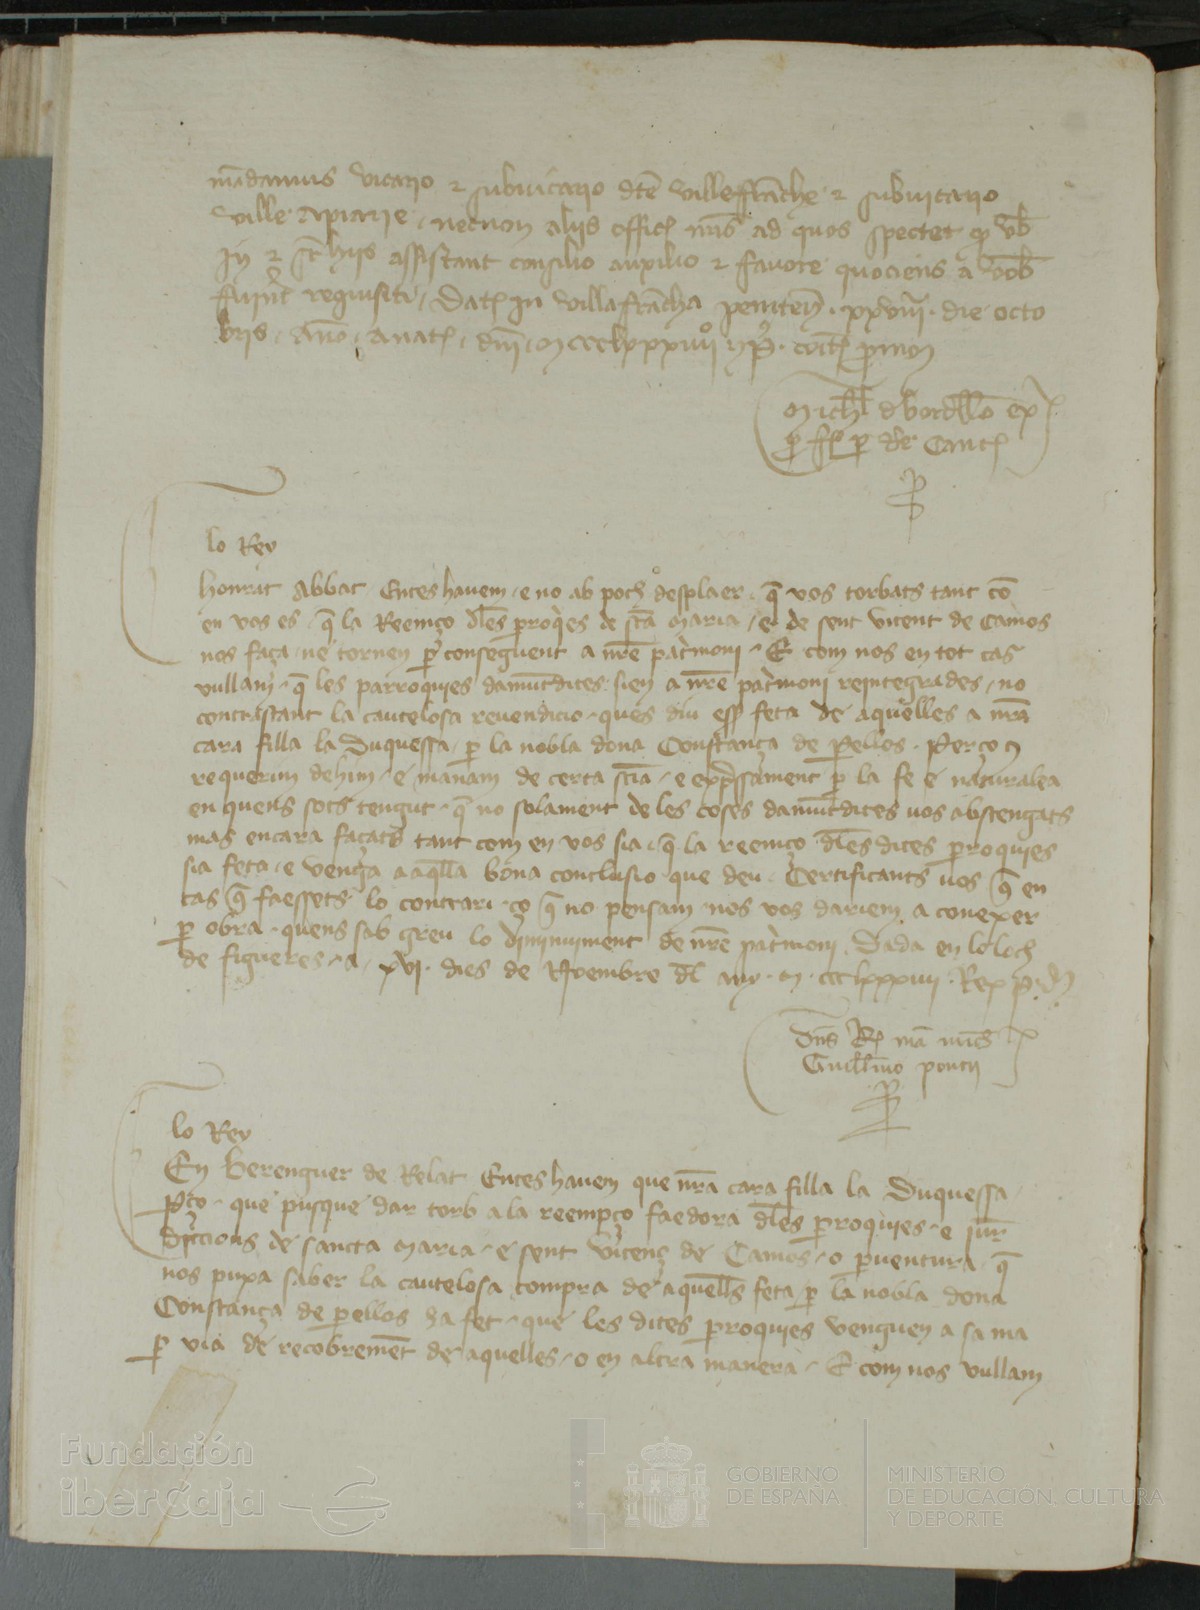 mādamus vicario ⁊ subvicario dc̄e villefrāche ⁊ subvicario
ville Apiarie, necnon aliis offic̄ nr̄is ad quos spectet ꝙ vob̄
in ⁊ sr̄ hiis assistant consilio auxilio ⁊ favore quociens a vob̄
fuīt requisiti, Datꝭ in villafrācha peniteñ. xxviii. die octo
bris, Anno, a natꝭ, dn̄i, m ccclxxxiiii
Mich̄l d bordell̄o ex
Lo Rey
Honrat Abbat Entes havem, e no ab poch desplaer, q̄ vos torbats tant cō
en vos es, q̄ la Reemço dl̄es ꝑroq̄es de sc̄a Maria, e de sent vicent de Camos
nos faça, ne tornen ꝑ conseguent a nr̄e pat̃moni. E com nos en tot cas
vullam, q̄ les parroquies damūtdites sien a nr̄e pat̃moni reintegrades, no
contrastant la cautelosa revendicio, ques diu esser feta de aquelles a nr̄a
cara filla la Duquessa, ꝑ la nobla dona Constança de ꝑellos. Perço
requerim dehim, e manam de certa sc̄ia, e exp̄ssament ꝑ la fe e naturalea
en quens sots tengut, q̄ no solament de les coses damūtdites vos abstengats
mas encara façats tant com en vos sia, q̄ la reemço dl̄es dites ꝑroquies
sia feta, e venga a aq̄lla bona conclusio que deu. Certificants vos q̄ en
cas q̄ faessets lo contrari, ço q̄ no pensam, nos vos dariem a conexer
ꝑ obra, quens sab greu lo diminuiment de nr̄e pat̃moni. Dada en lo loch
de figueres, a, xvi. dies de Noembre dl̄ any. m. ccclxxxiiii. Rex p.
Dn̄s Rex mā michi
Guill̄mo poncii
Lo Rey
En Berenguer de Relat Entes havem que nr̄a cara filla la Duquessa,
ꝑço, que pusque dar torb a la reemço faedora dl̄es ꝑroquies, e jur̄
diccions de sancta Maria, e sent vicenç de Camos, o ꝑventura, q̄
nos puxa saber la cautelosa compra de aquell̄s feta ꝑ la nobla dona
Constança de ꝑellos ha fet, que les dites ꝑroquies venguen a sa ma
ꝑ via de recobremēt de aquelles, o en altra manera. E com nos vullam
Fundación
iberCaja
GOBIERNO
DE ESPAÑA
MINISTERIO
DE EDUCACIÓN, CULTURA
Y DEPORTE